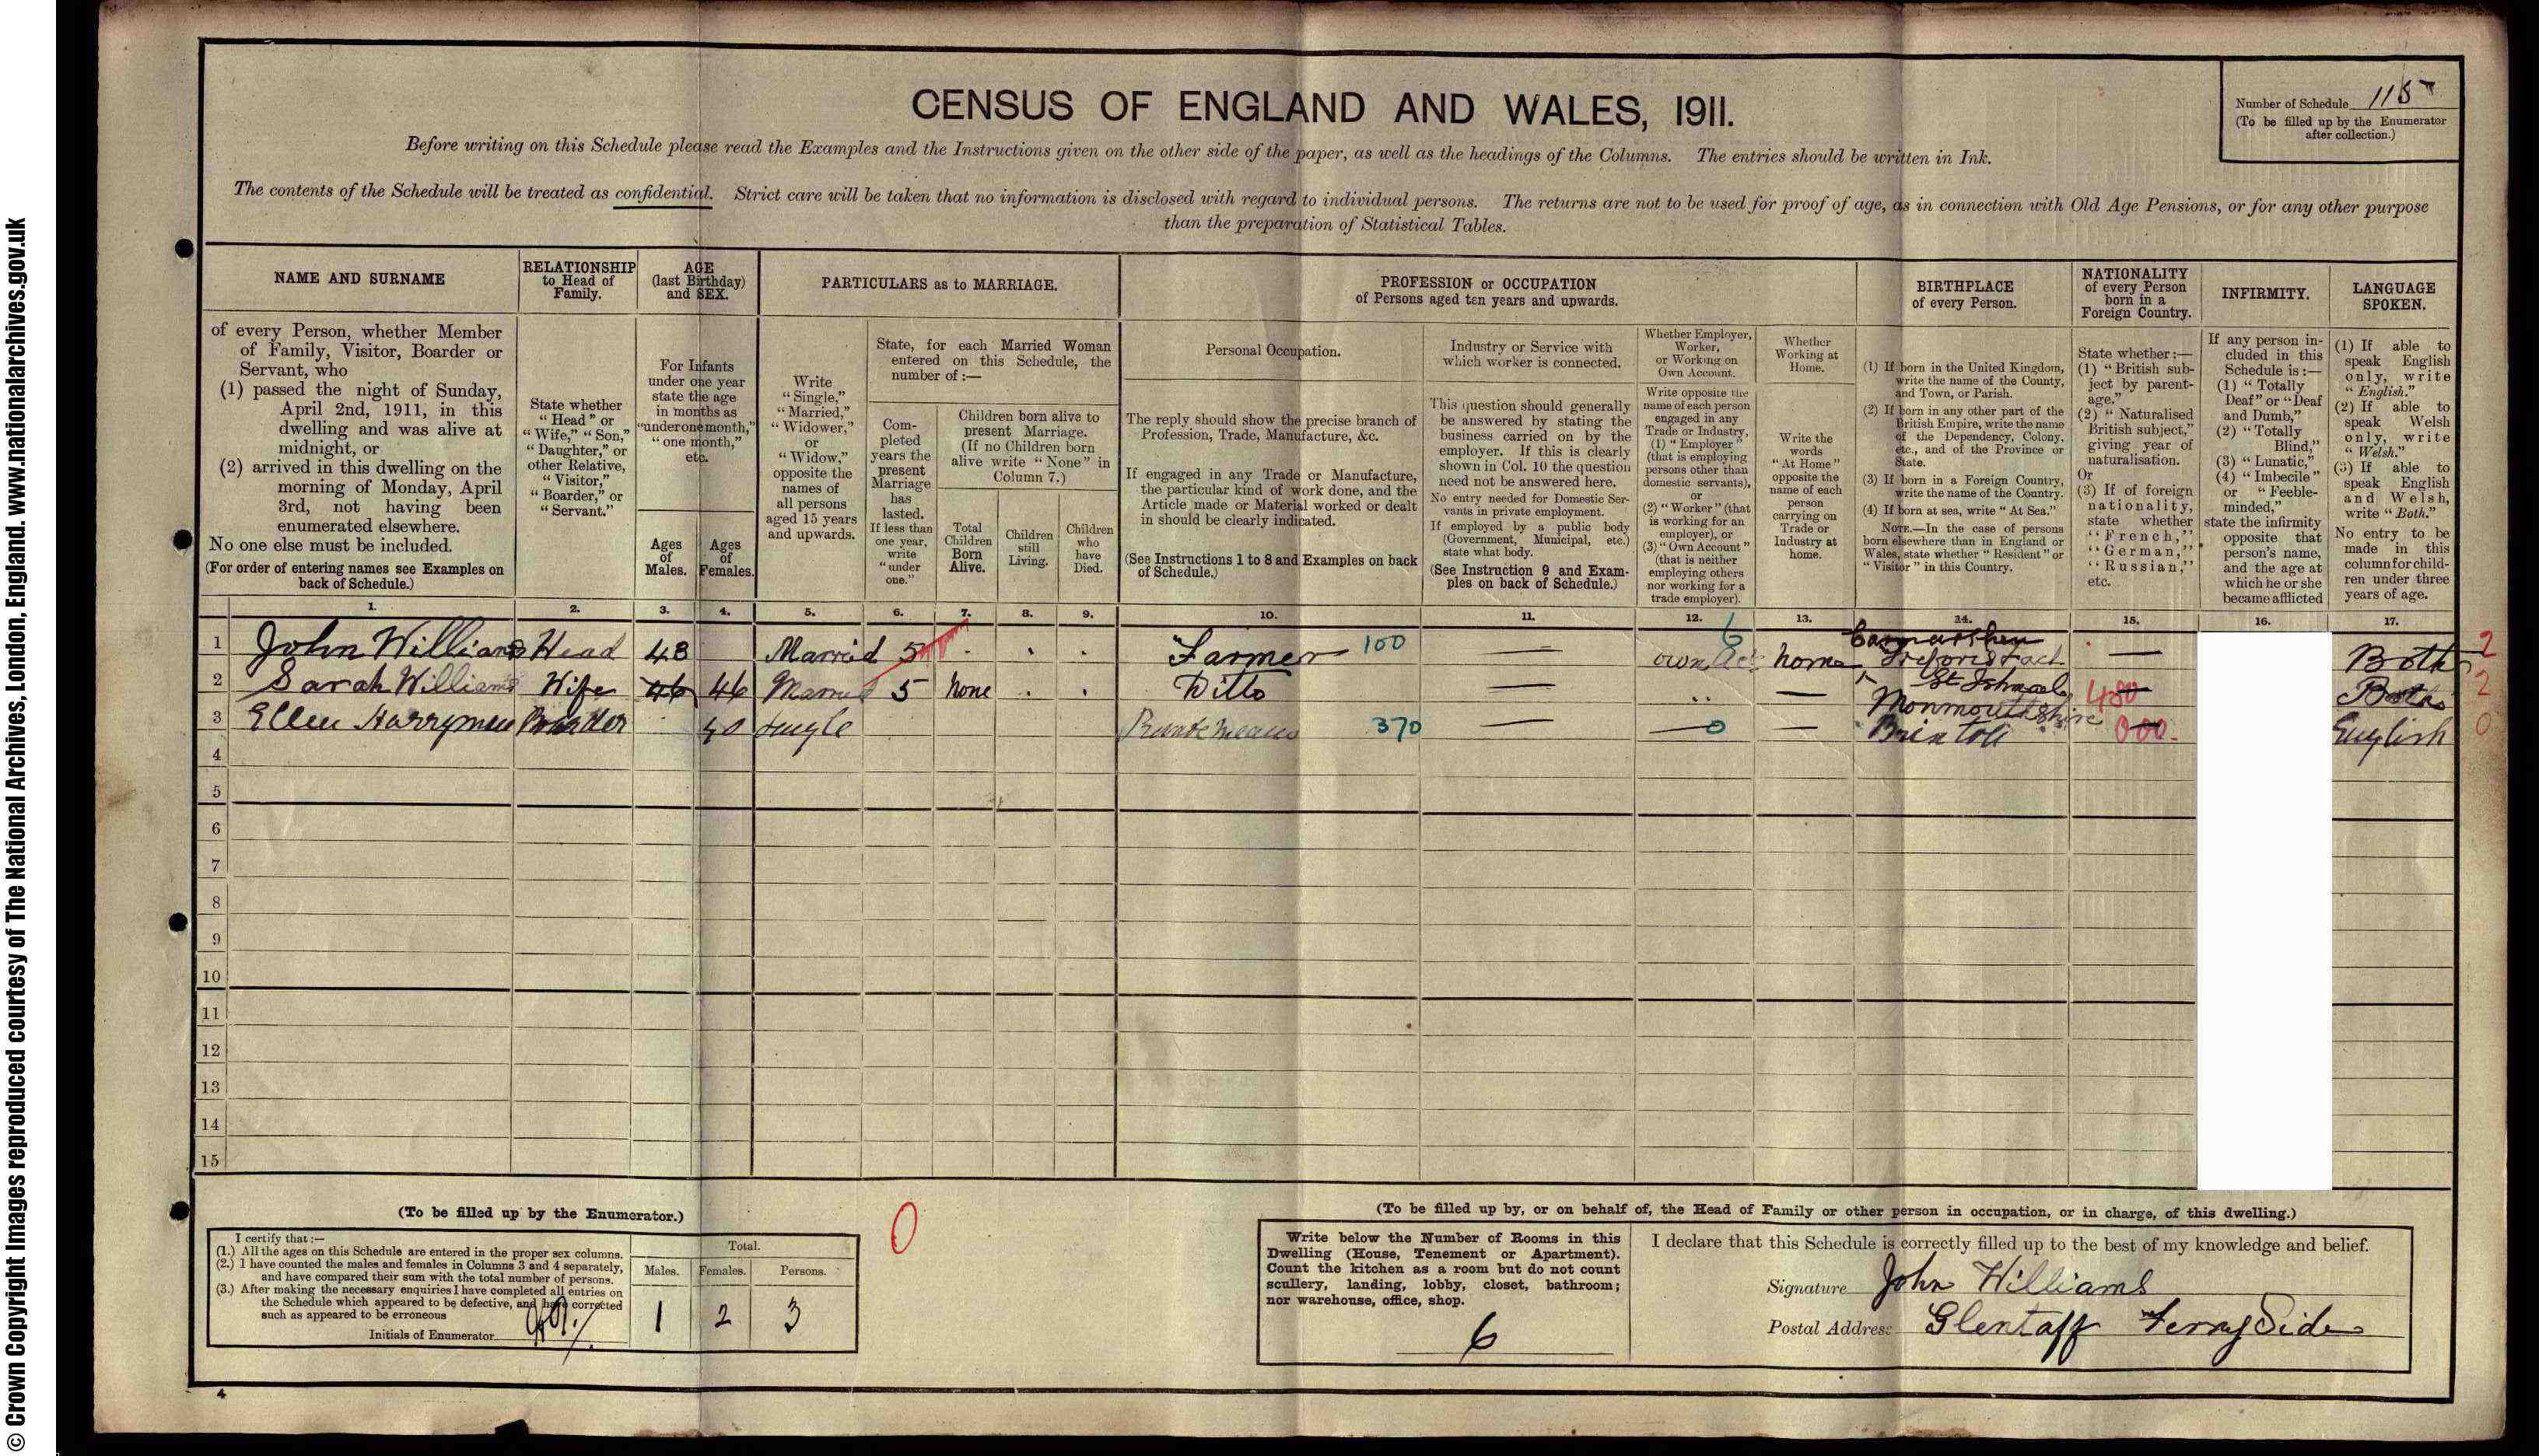 © Crown Copyright Images reproduced courtesy of The National Archives, London, England. www.nationalarchives.gov.uk
CENSUS OF ENGLAND AND WALES, 1911.
Number of Schedule 115
(To be filled up by the Enumerator
after collection.)
Before writing on this Schedule please read the Examples and the Instructions given on the other side of the paper, as well as the headings of the Columns. The entries should be written in Ink.
The contents of the Schedule will be treated as confidential. Strict care will be taken that no information is disclosed with regard to individual persons. The returns are not to be used for proof of age, as in connection with Old Age Pensions, or for any other purpose
than the preparation of Statistical Tables.
NAME AND SURNAME
of every Person, whether Member
of Family, Visitor, Boarder or
Servant, who
(1) passed the night of Sunday,
April 2nd, 1911, in this
dwelling and was alive at
midnight, or
(2) arrived in this dwelling on the
morning of Monday, April
3rd, not having been
enumerated elsewhere.
No one else must be included.
(For order of entering names see Examples on
back of Schedule.)
RELATIONSHIP
to Head of
Family.
State whether
"Head" or
"Wife," "Son,"
"Daughter," or
other Relative,
"Visitor,"
"Boarder," or
"Servant."
AGE
(last Birthday)
and SEX.
For Infants
under one year
state the age
in months as
"under one month,"
"one month,"
etc.
Ages
of
Males.
Ages
of
Females.
PARTICULARS as to MARRIAGE.
Write
"Single,"
"Married,"
"Widower,"
or
"Widow,"
opposite the
names of
all persons
aged 15 years
and upwards.
State, for each Married Woman
entered on this Schedule, the
number of :—
Com-
pleted
years the
present
Marriage
has
lasted.
If less than
one year,
write
"under
one."
Children born alive to
present Marriage.
(If no Children born
alive write "None" in
Column 7.)
Total
Children
Born
Alive.
Children
still
Living.
Children
who
have
Died.
PROFESSION or OCCUPATION
of Persons aged ten years and upwards.
Personal Occupation.
The reply should show the precise branch of
Profession, Trade, Manufacture, &c.
If engaged in any Trade or Manufacture,
the particular kind of work done, and the
Article made or Material worked or dealt
in should be clearly indicated.
(See Instructions 1 to 8 and Examples on back
of Schedule.)
Industry or Service with
which worker is connected.
This question should generally
be answered by stating the
business carried on by the
employer. If this is clearly
shown in Col. 10 the question
need not be answered here.
No entry needed for Domestic Ser-
vants in private employment.
If employed by a public body
(Government, Municipal, etc.)
state what body.
(See Instruction 9 and Exam-
ples on back of Schedule.)
Whether Employer,
Worker,
or Working on
Own Account.
Write opposite the
name of each person
engaged in any
Trade or Industry,
(1) "Employer"
(that is employing
persons other than
domestic servants),
or
(2) "Worker" (that
is working for an
employer), or
(3) "Own Account"
(that is neither
employing others
nor working for a
trade employer).
Whether
Working at
Home.
Write the
words
"At Home"
opposite the
name of each
person
carrying on
Trade or
Industry at
home.
BIRTHPLACE
of every Person.
(1) If born in the United Kingdom,
write the name of the County,
and Town, or Parish.
(2) If born in any other part of the
British Empire, write the name
of the Dependency, Colony,
etc., and of the Province or
State.
(3) If born in a Foreign Country,
write the name of the Country.
(4) If born at sea, write "At Sea."
NOTE.—In the case of persons
born elsewhere than in England or
Wales, state whether "Resident" or
"Visitor" in this Country.
NATIONALITY
of every Person
born in a
Foreign Country.
State whether :—
(1) "British sub-
ject by parent-
age."
(2) "Naturalised
British subject,"
giving year of
naturalisation.
Or
(3) If of foreign
nationality,
state whether
"French,"
"German,"
"Russian,"
etc.
INFIRMITY.
If any person in-
cluded in this
Schedule is :—
(1) "Totally
Deaf" or "Deaf
and Dumb,"
(2) "Totally
Blind,"
(3) "Lunatic,"
(4) "Imbecile"
or "Feeble-
minded,"
state the infirmity
opposite that
person's name,
and the age at
which he or she
became afflicted
LANGUAGE
SPOKEN.
(1) If able to
speak English
only, write
"English."
(2) If able to
speak Welsh
only, write
"Welsh."
(3) If able to
speak English
and Welsh,
write "Both."
No entry to be
made in this
column for child-
ren under three
years of age.
1. 2. 3. 4. 5. 6. 7. 8. 9. 10. 11. 12. 13. 14. 15. 16. 17.
1 John Williams Head 48 Married 5 Farmer 100 own Ac 6 home Carmarthen Both 2
2 Sarah Williams Wife 46 46 Married 5 None Ditto — .. — St Ishmael 480 Both 2
3 Ellen Harrymen Boarder 40 Single Private Means 370 — 0 — Monmouthshire 000 English 0
4
5
6
7
8
9
10
11
12
13
14
15
(To be filled up by the Enumerator.)
I certify that :—
(1.) All the ages on this Schedule are entered in the proper sex columns.
(2.) I have counted the males and females in Columns 3 and 4 separately,
and have compared their sum with the total number of persons.
(3.) After making the necessary enquiries I have completed all entries on
the Schedule which appeared to be defective, and have corrected
such as appeared to be erroneous
Initials of Enumerator
Total.
Males. Females. Persons.
1 2 3
0
(To be filled up by, or on behalf of, the Head of Family or other person in occupation, or in charge, of this dwelling.)
Write below the Number of Rooms in this
Dwelling (House, Tenement or Apartment).
Count the kitchen as a room but do not count
scullery, landing, lobby, closet, bathroom;
nor warehouse, office, shop.
6
I declare that this Schedule is correctly filled up to the best of my knowledge and belief.
Signature John Williams
Postal Address Glentaff Ferry Side
4